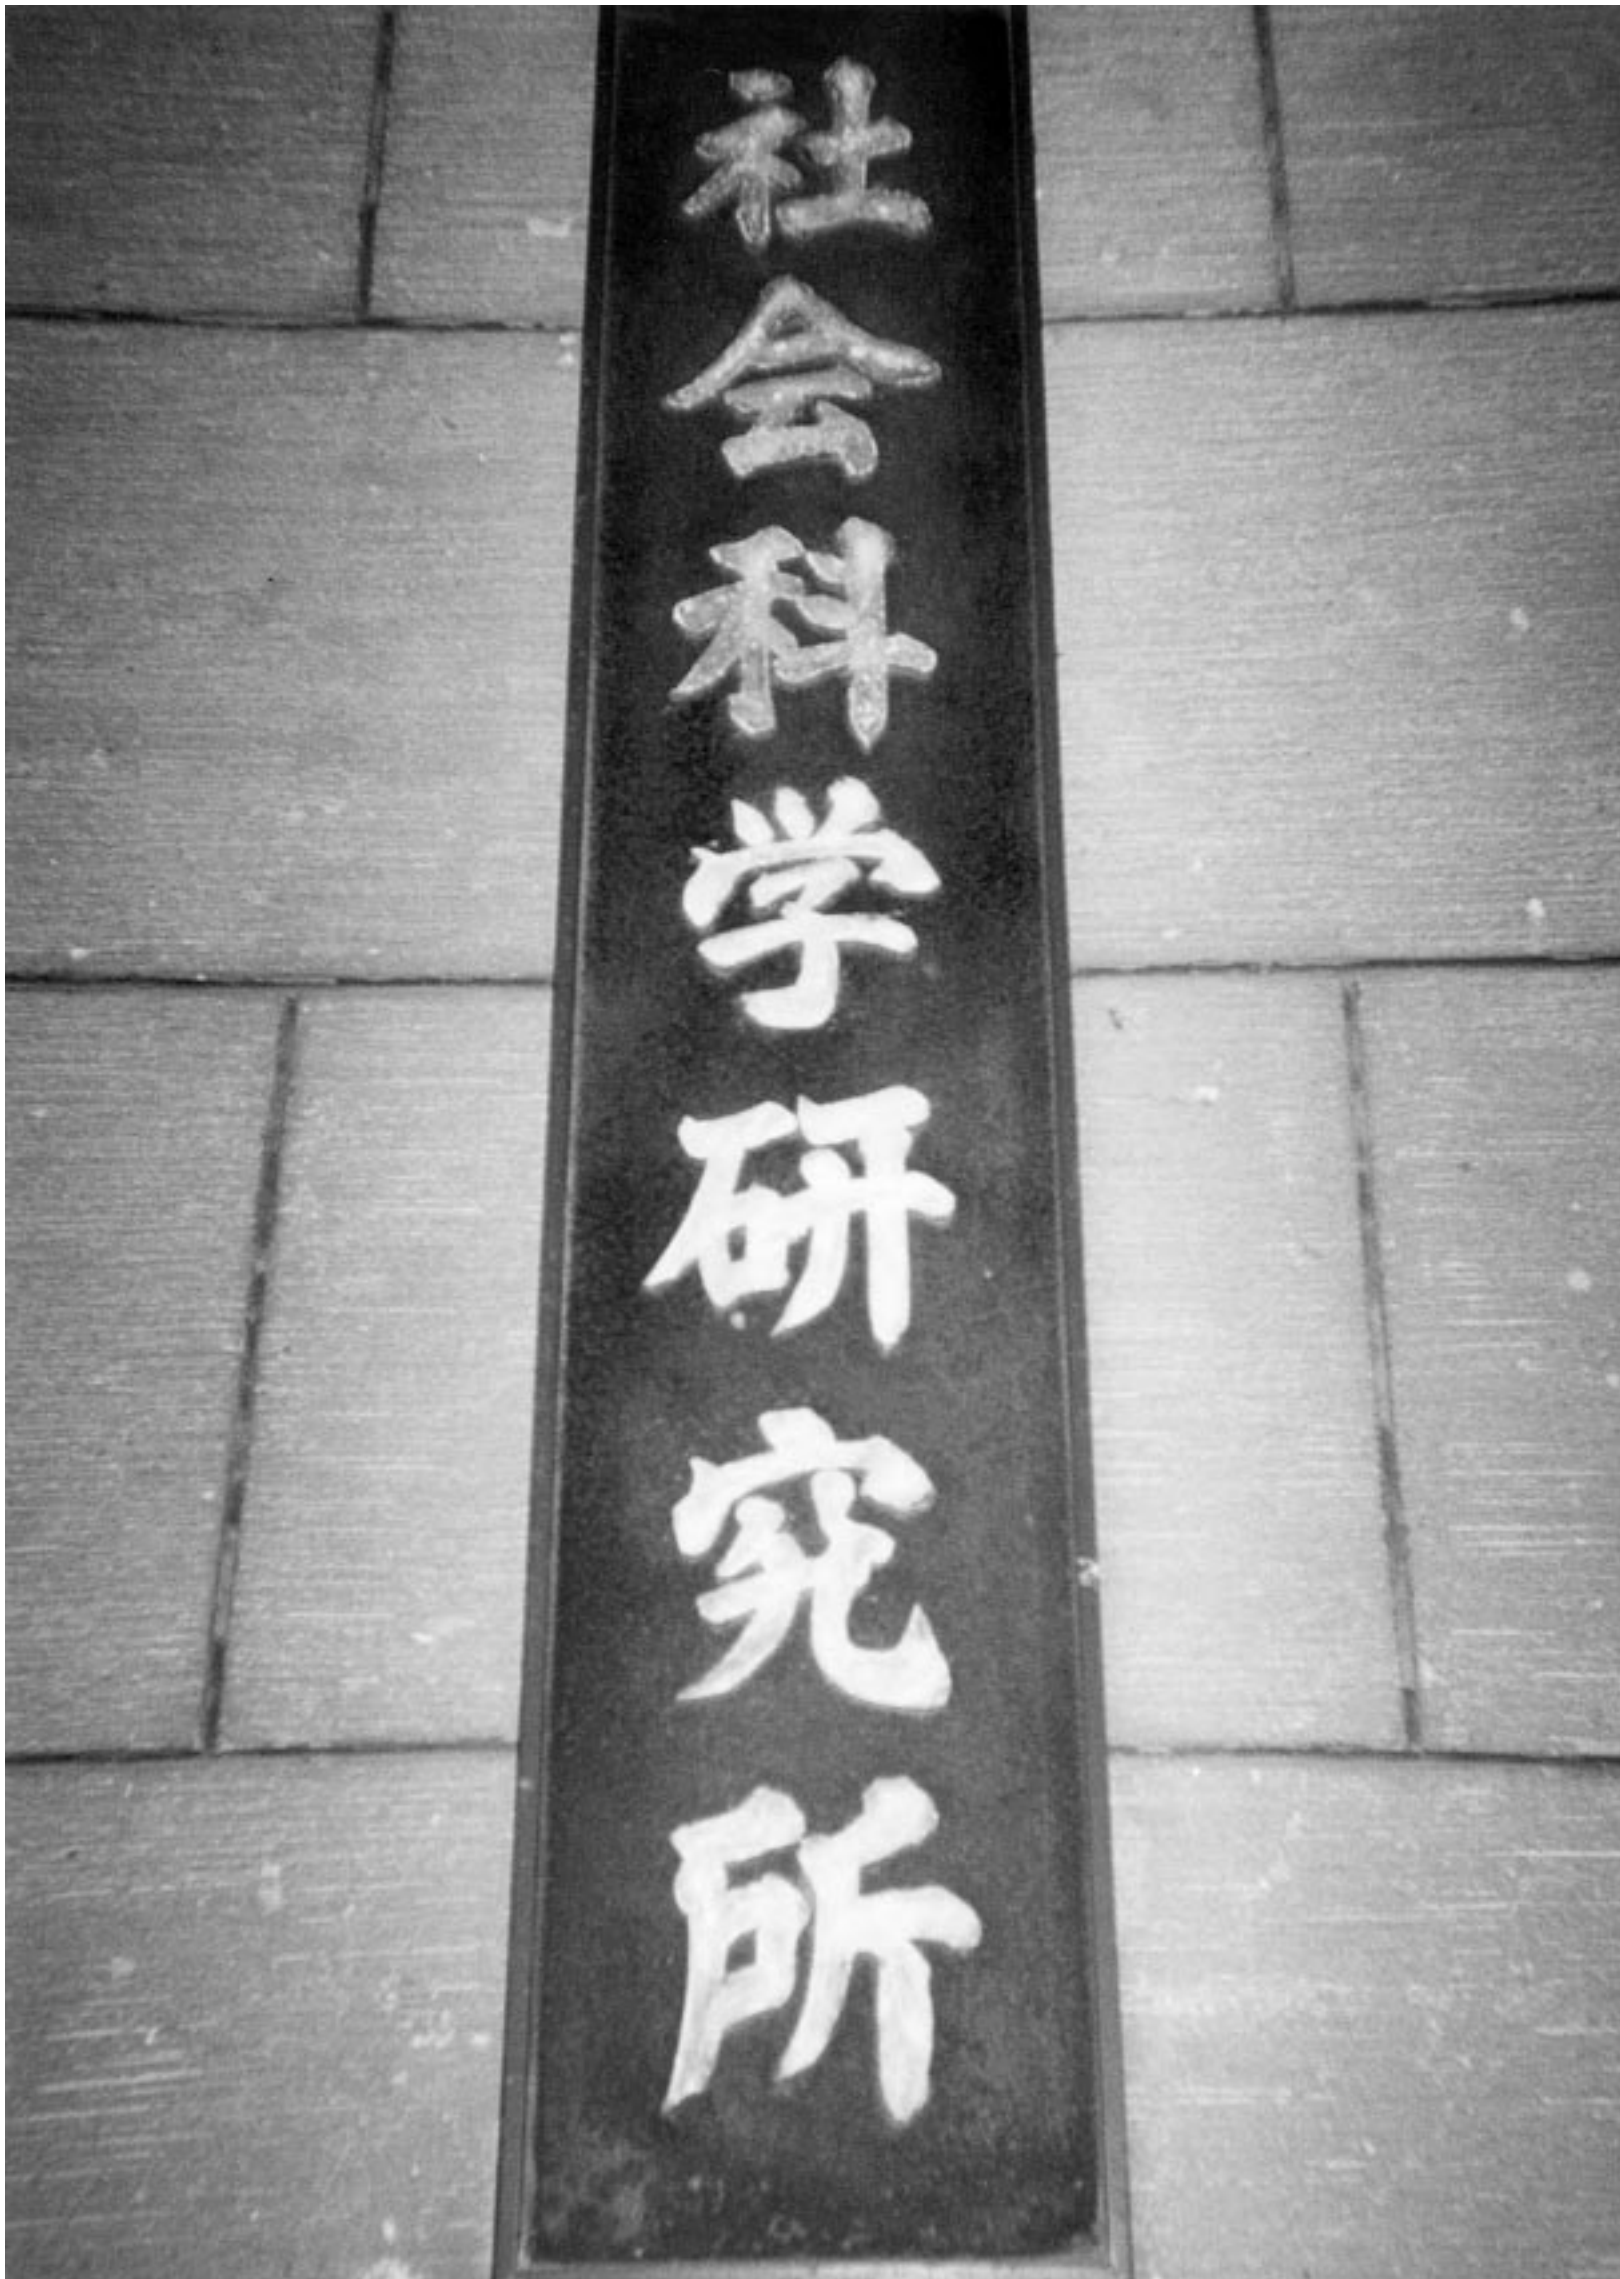 社会科学研究所